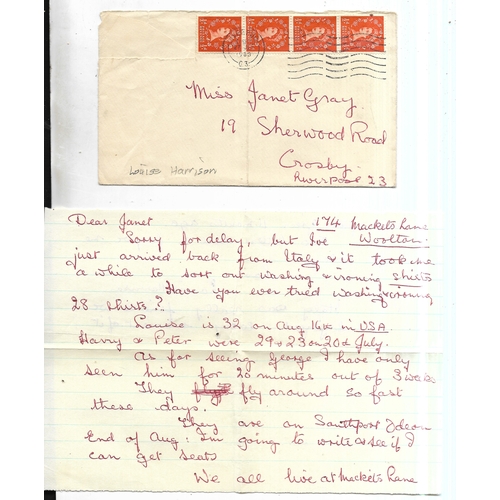 Miss Janet Gray.
19 Sherwood Road
Crosby.
Liverpool 23
Louise Harrison
Dear Janet
174 Mackets Lane
Sorry for delay, but I've Woolton.
just arrived back from Italy & it took me
a while to sort out washing & ironing shirts
Have you ever tried washing & ironing
28 shirts?
Louise is 32 on Aug 16th in USA.
Harry & Peter were 29 & 23 on 20th July.
As for seeing George I have only
seen him for 20 minutes out of 3 weeks
They fly around so fast
these days.
They are on Southport Odeon
End of Aug: I'm going to write & see if I
can get seats
We all live at Mackets Lane